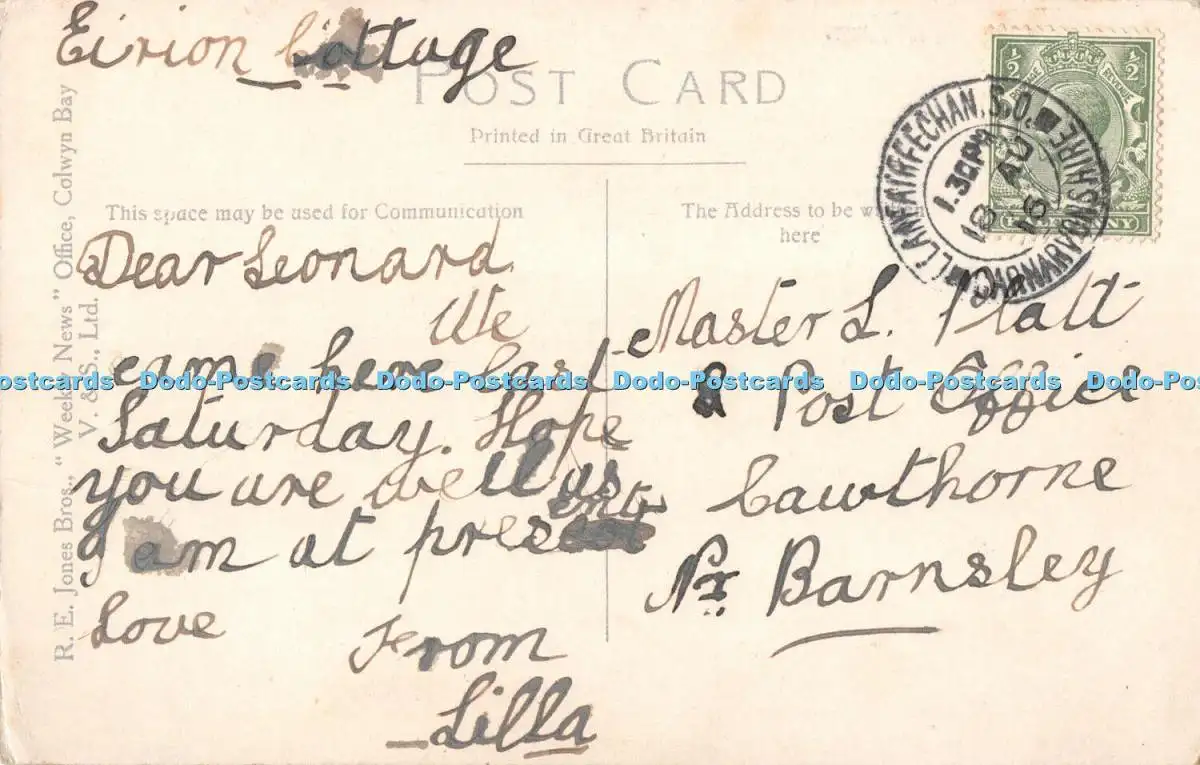 Eirion Cottage
POST CARD
Printed in Great Britain
This space may be used for Communication
The Address to be written here
R. E. Jones Bros., "Weekly News" Office, Colwyn Bay
V. & S., Ltd.
LLANFAIRFECHAN. S.O. CARNARVONSHIRE
1.30PM
18 AU
16
Dear Leonard
We
came here last
Saturday. Hope
you are well as
I am at present
Love
From
Lilla
Master L. Platt
Post Office
Cawthorne
Nr Barnsley
Dodo-Postcards Dodo-Postcards Dodo-Postcards Dodo-Postcards Dodo-Postcards